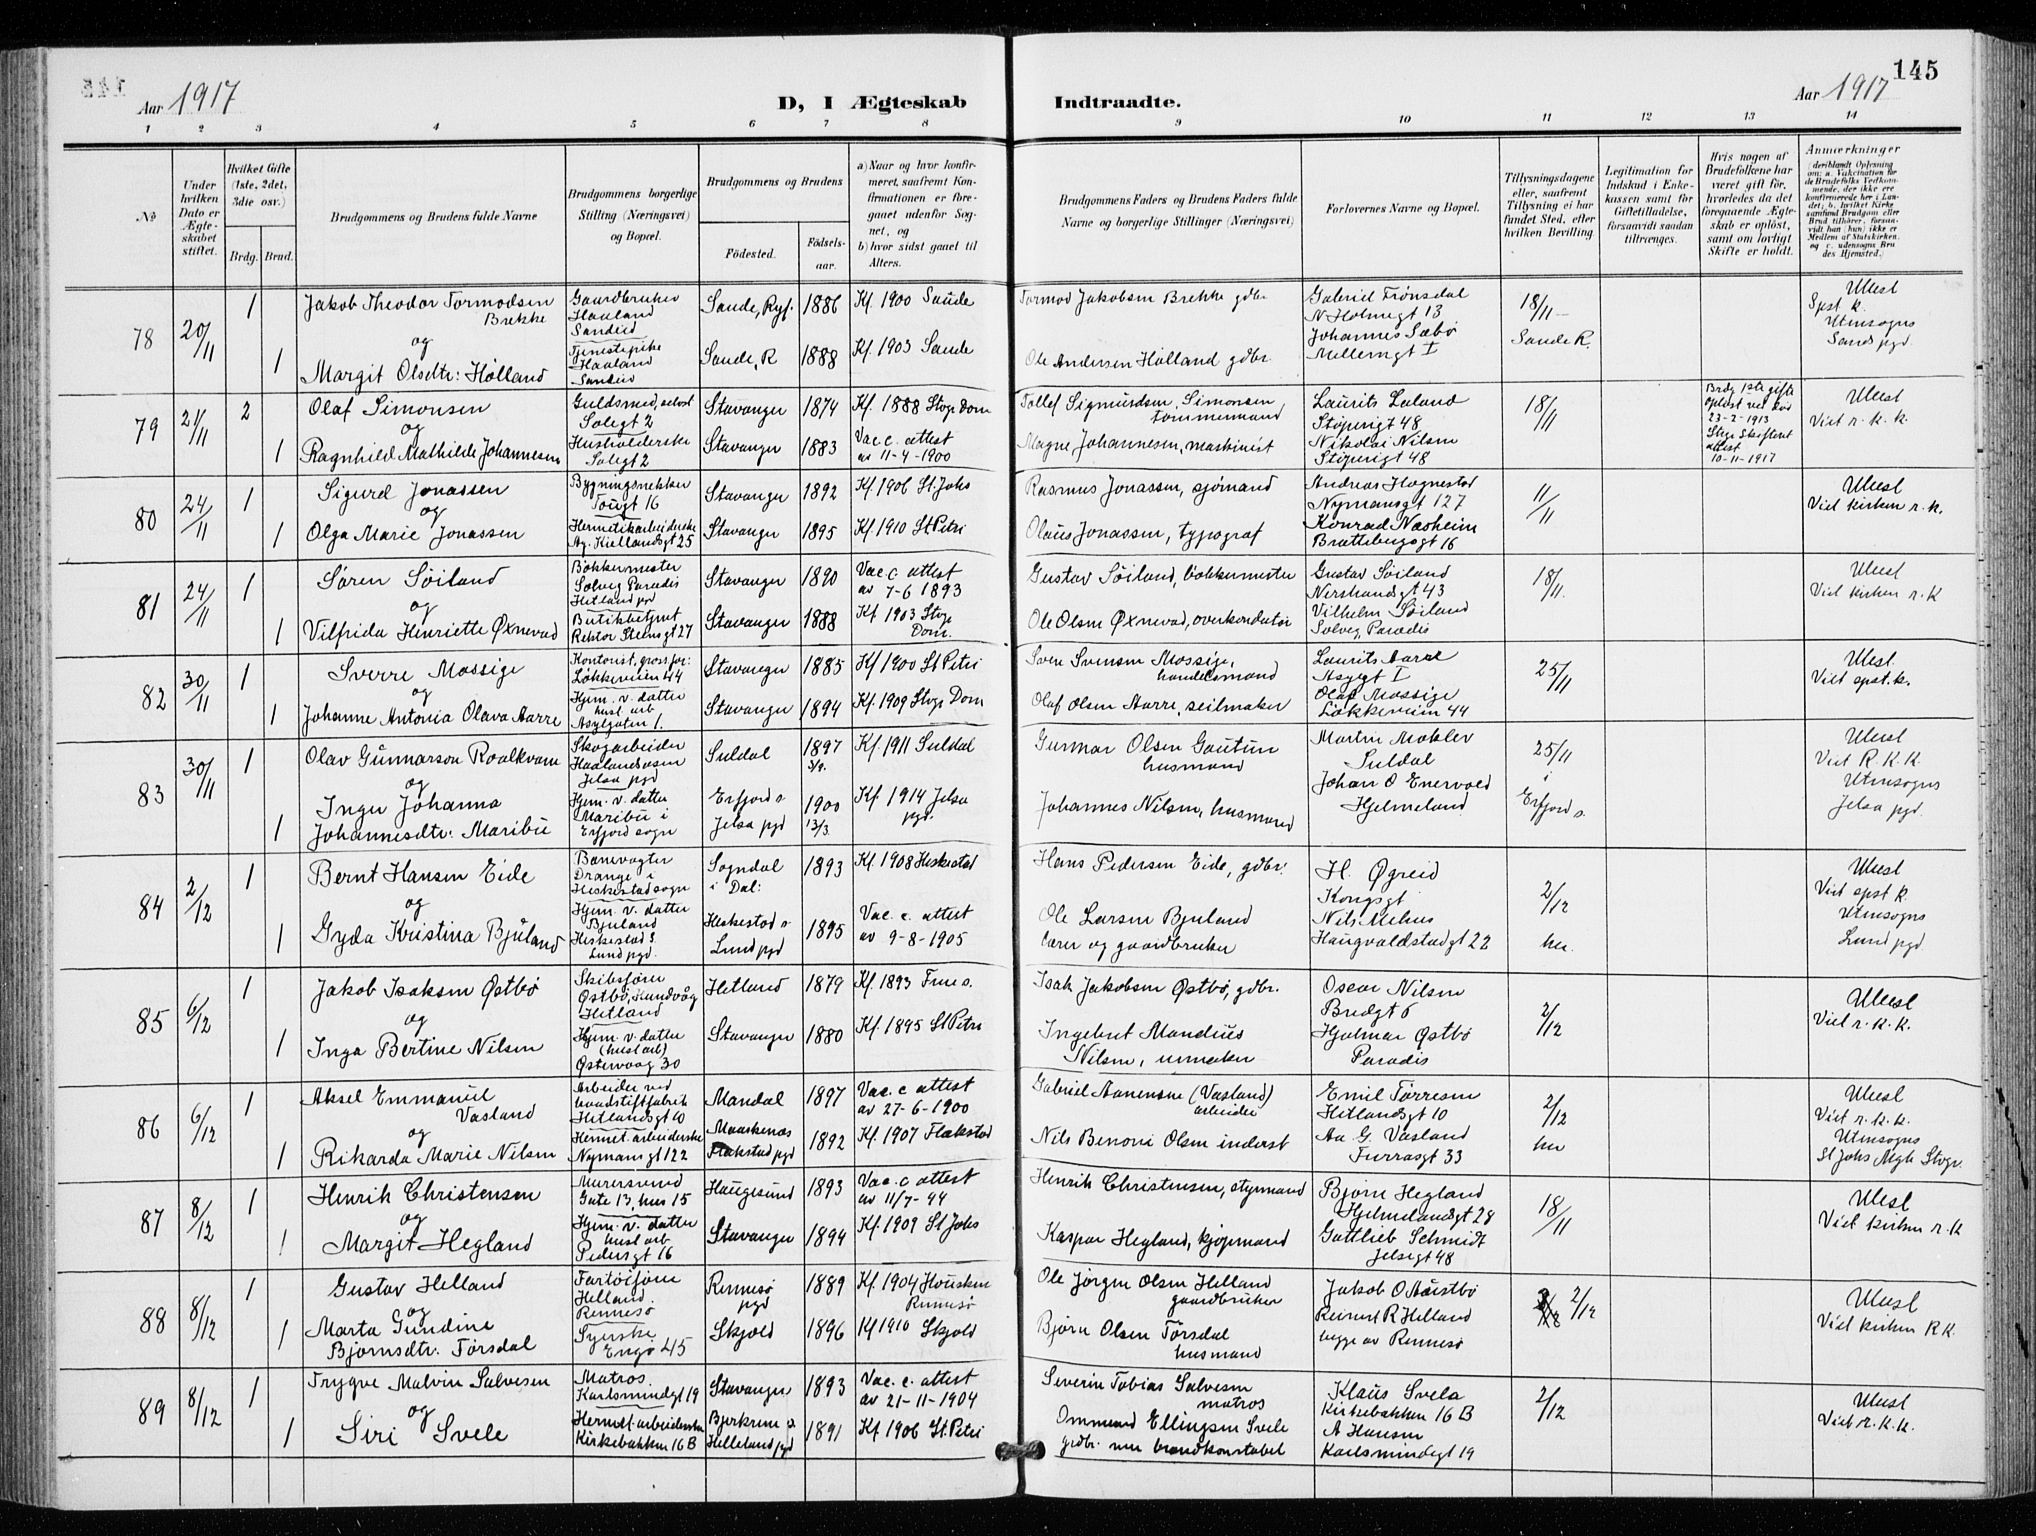 145
Aar 1917
D, I Ægteskab
Indtraadte.
Aar 1917
1 2 3 4 5 6 7 8 9 10 11 12 13 14
No
Under hvilken Dato er Ægteskabet stiftet.
Hvilket Gifte (1ste, 2det, 3die osv.)
Brdg. Brud.
Brudgommens og Brudens fulde Navne
Brudgommens borgerlige Stilling (Næringsvei) og Bopæl.
Brudgommens og Brudens
Födested.
Födselsaar.
a) Naar og hvor konfirmeret, saafremt Konfirmationen er foregaaet udenfor Sognet, og
b) hvor sidst gaaet til Alters.
Brudgommens Faders og Brudens Faders fulde Navne og borgerlige Stillinger (Næringsvei)
Forlovernes Navne og Bopæl.
Tillysningsdagene eller, saafremt Tillysning ei har fundet Sted, efter hvilken Bevilling.
Legitimation for Indskud i Enkekassen samt for Giftetilladelse, forsaavidt saadan tiltrænges.
Hvis nogen af Brudefolkene har været gift før, hvorledes da det foregaaende Ægteskab er opløst, samt om lovligt Skifte er holdt.
Anmærkninger
78
20/11
1
Jakob Theodor Tormodsen
Brekke
og
1
Margit Olsdtr: Hölland
Gaardbruker
Haaland
Sandeid
Tjenestepike
Haaland
Sandeid
Sande, Ryf.
1886
Kf. 1900 Saude
Sande, R
1888
Kf. 1903 Sande
Tormod Jakobsen Brekke gdbr
Ole Andersen Hölland gdbr.
Gabriel Trönsdal
N Holmegt 13
Johannes Sæbö
Mellemgt I
18/11
Sande R.
Spst k.
Utensogns
Sands pgd
79
21/11
2
Olaf Simonsen
og
1
Ragnhild Mathilde Johannesen
Guldsmed, selvst
Solegt 2
Husholderske
Solegt 2
Stavanger
1874
Kf. 1888 Stvgr Dom
Stavanger
1883
Vac c. attest
av 11-4-1900
Tollef Sigmundsen, Simonsen
tømmermand
Magne Johannesen, maskinist
Laurits Laland
Støperigt 48
Nikolai Nilsen
Støperigt 48
18/11
Brdg 1ste gifte
opløst ved død
23-2-1913
Stvgr Skifteret
attest
10-11-1917
Viet r. k. k.
80
24/11
1
Sigurd Jonassen
og
1
Olga Marie Jonassen
Bygningssnekker
Tougt 16
Hermetikarbeiderske
Ag. Kiellandsgt 25
Stavanger
1892
Kf 1906 St. Johs
Stavanger
1895
Kf. 1910 St Petri
Rasmus Jonassen, sjömand
Olaus Jonassen, typograf
Andreas Hognestad
Nymansgt 127
Konrad Næsheim
Brattebergsgt 16
11/11
Viet kirken r. k.
81
24/11
1
Søren Söiland
og
1
Vilfrida Henriette Øxnevad
Bökkermester
Solveg Paradis
Hetland pgd
Butikbetjent
Rektor Steensgt 27
Stavanger
1890
Vac c attest
av 7-6 1893
Stavanger
1888
Kf 1903 Stvgr
Dom.
Gustav Söiland, bökkermester
Ole Olsen Øxnevad, overkonduktör
Gustav Söiland
Nerstrandsgt 43
Vilhelm Söiland
Solveg, Paradis
18/11.
Viet kirken r. K
82
30/11
1
Sverre Mossige
og
1
Johanne Antonia Olava Aarre
Kontorist, gross for:
Løkkeveien 44
Hjem. v. datter
hust arb
Asylgaten 1.
Stavanger
1885
Kf 1900 St Petri
Stavanger
1894
Kf. 1909 Stvgr Dom
Sven Svensen Mossige,
handelsmand
Olaf Olsen Aarre, seilmaker
Laurits Aarre
Asygt I
Olaf Mossige
Løkkeveien 44
25/11
Viet spst. k.
83
30/11
1
Olav Gunnarson Roalkvam
og
Inger Johanna
1
Johannesdtr: Maribu
Skogarbeider
Haalandsosen
Jelsa pgd
Hjem. v. datter
Maribu i
Erfjord sogn
Suldal
1897
5/9.
Kf. 1911 Suldal
Erfjord s
Jelsa pgd
1900
13/3
Kf. 1914 Jelsa
pgd.
Gunnar Olsen Gautun
husmand
Johannes Nilsen, husmand
Martin Moklev
Suldal
Johan O Enervold
Hjelmeland
25/11
i
Erfjord s.
Viet R. K. K.
Utensogns
Jelsa pgd.
84
2/12
1
Bernt Hansen Eide
og
1
Gyda Kristina Bjuland
Banevogter
Drange i
Heskestad sogn
Hjem. v. datter
Bjuland
Heskestad s.
Lund pgd.
Sogndal
i Dal:
1893
Kf. 1908 Heskestad
Heskestad s
Lund pgd
1895
Vac. c. attest
av 9-8-1905
Hans Pedersen Eide, gdbr.
Ole Larsen Bjuland
lærer og gaardbruker
H. Øgreid
Kongsgt
Nils Mehus
Haugvaldstadgt 22
2/12
her.
Viet spst k.
Utensogns
Lund pgd
85
6/12
1
Jakob Isaksen Østbø
og
1
Inga Bertine Nilsen
Skibsfører
Østbø, Hundvåg
Hetland
Hjem. v. datter
(hust arb)
Østervaag 30
Hetland
1879
Kf. 1893 Frue s.
Stavanger
1880
Kf. 1895 St Petri
Isak Jakobsen Østbø, gdbr.
Ingebret Mandius
Nilsen, urmaker
Oscar Nilsen
Bredgt 6
Hjalmar Østbø
Paradis
2/12
Viet r. k. k.
86
6/12
1
Aksel Emmanuel
Vasland
og
1
Rikarda Marie Nilsen
Arbeider ved
traadstiftfabrik
Hetlandsgt 10
Hermet. arbeiderske
Nymansgt 122
Mandal
1897
Vac. c attest
av 27-6-1900
Maarkenæs
Flakstad pgd
1892
Kf. 1907 Flakstad
Gabriel Aanensen (Vasland)
arbeider
Nils Benoni Olsen inderst
Emil Törresen
Hetlandsgt 10
Aa G. Vasland
Furrasgt 33
2/12
her
Viet r. k. k.
Utensogns
St Johs Mgh Stvgr.
87
8/12
1
Henrik Christensen
og
1
Margit Hegland
Murersvend
Gate 13, hus 15
Hjem. v. datter
hust arb
Pedersgt 16
Haugesund
1893
Vac. c attest
av 11/7-94
Stavanger
1894
Kf. 1909 St Johs
Henrik Christensen, styrmand
Kaspar Hegland, kjøpmand
Bjørn Hegland
Hjelmelandsgt 28
Gottlieb Schmidt
Jelsegt 48
18/11
Viet kirken r. K
88
8/12
1
Gustav Helland
og
Marta Gundine
1
Bjørnsdtr. Törsdal
Fartöifører
Helland.
Rennesö
Syerske
Engø 45
Rennesö
pgd
1889
Kf. 1904 Hausken
Rennesö
Skjold
1896
Kf 1910 Skjold
Ole Jörgen Olsen Helland
gaardbruker
Bjørn Olsen Törsdal
husmand
Jakob O Austbø
Reinert R Helland
begge av Rennesø
2/12
Viet kirken R K.
89
8/12
1
Trygve Malvin Salvesen
og
1
Siri Svele
Matros.
Karlsmindegt 19
Hermet. arbeiderske
Kirkebakken 16 B
Stavanger
1893
Vac. c. attest
av 21-11-1904
Bjerkrem s.
Helleland pgd
1891
Kf 1906 St. Petri
Severin Tobias Salvesen
matros
Ommund Ellingsen Svele
grdbr. nu brandkonstabel
Klaus Svela
Kirkebakken 16 B
A Hansen
Karlsmindegt 19
2/12
Viet r. k. k.